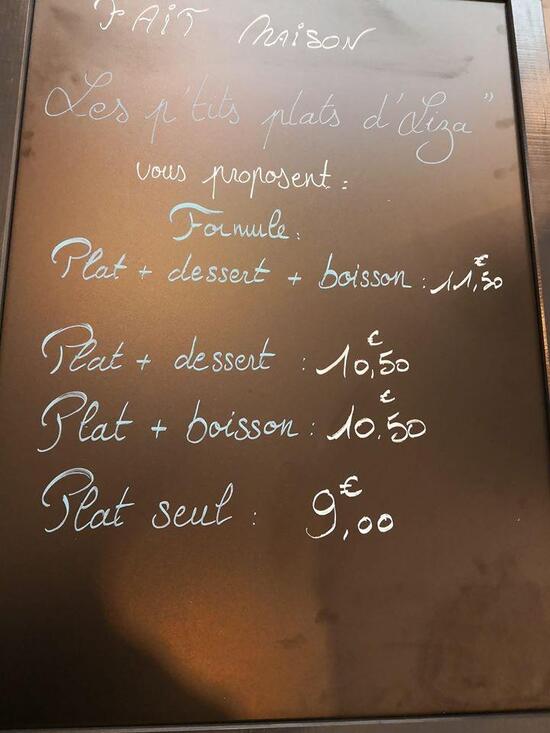 FAIT MAISON
Les p'tits plats d'Liza"
vous proposent :
Formule :
Plat + dessert + boisson : 11,50€
Plat + dessert : 10,50€
Plat + boisson : 10,50€
Plat seul : 9,00€